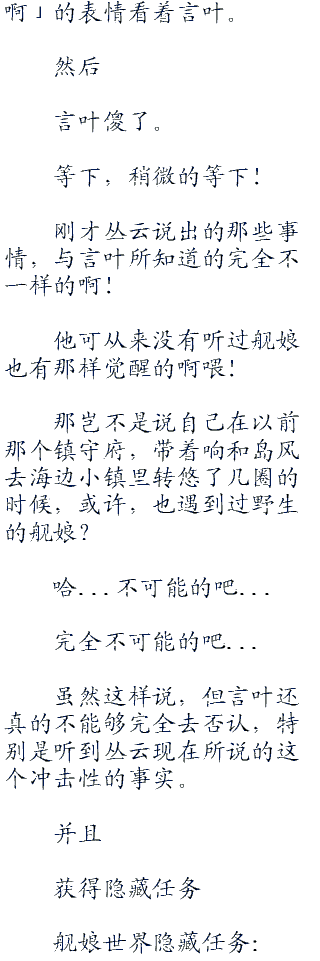 啊」的表情看着言叶。
然后
言叶傻了。
等下，稍微的等下！
刚才丛云说出的那些事
情，与言叶所知道的完全不
一样的啊！
他可从来没有听过舰娘
也有那样觉醒的啊喂！
那岂不是说自己在以前
那个镇守府，带着响和岛风
去海边小镇里转悠了几圈的
时候，或许，也遇到过野生
的舰娘？
哈...不可能的吧...
完全不可能的吧...
虽然这样说，但言叶还
真的不能够完全去否认，特
别是听到丛云现在所说的这
个冲击性的事实。
并且
获得隐藏任务
舰娘世界隐藏任务：